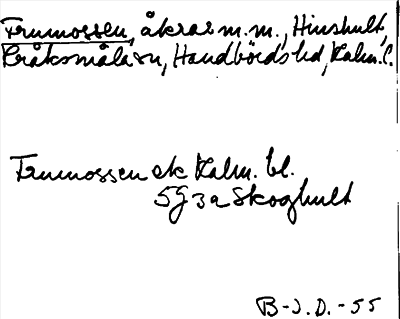 Frumossen, åkrar m.m., Hinshult,
Bråksmåla sn, Handbörds hd, Kalm. l.
Frumossen ek Kalm. bl.
5G 3a Skoghult
B-J.D.-55